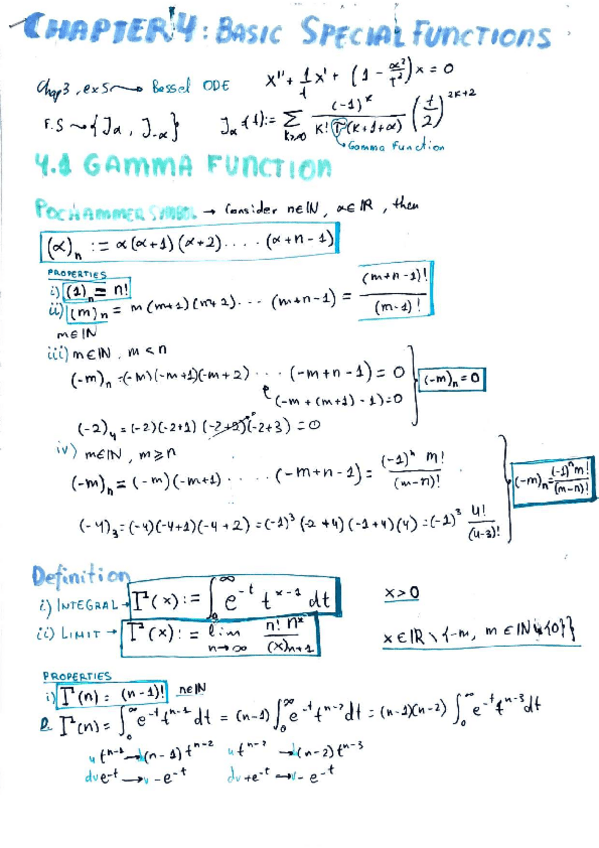 CHAPTER 4: BASIC SPECIAL FUNCTIONS
Chap3, ex5 → Bessel ODE x'' + 1/t x' + (1 - α²/t²) x = 0
F.S ~ {J_α, J_-α} J_α(t) := Σ_{k≥0} (-1)^k / (k! Γ(k+1+α)) (t/2)^{2k+α}
Gamma Function
4.1 GAMMA FUNCTION
POCHAMMER SYMBOL → Consider n∈ℕ, α∈ℝ, then
(α)_n := α(α+1)(α+2)....(α+n-1)
PROPERTIES
i) (1)_n = n!
ii) (m)_n = m(m+1)(m+2)... (m+n-1) = (m+n-1)! / (m-1)!
m∈ℕ
iii) m∈ℕ, m<n
(-m)_n = (-m)(-m+1)(-m+2) ... (-m+n-1) = 0 (-m)_n = 0
(-m+(m+1)-1)=0
(-2)_4 = (-2)(-2+1)(-2+2)(-2+3) = 0
iv) m∈ℕ, m≥n
(-m)_n = (-m)(-m+1)..... (-m+n-1) = (-1)^n m! / (m-n)! (-m)_n = (-1)^n m! / (m-n)!
(-4)_3 = (-4)(-4+1)(-4+2) = (-1)^3 (-2+4)(-1+4)(4) = (-1)^3 4! / (4-3)!
Definition
i) INTEGRAL → Γ(x) := ∫_0^∞ e^{-t} t^{x-1} dt x>0
ii) LIMIT → Γ(x) := lim_{n→∞} n! n^x / (x)_{n+1} x∈ℝ\{-m, m∈ℕ∪{0}}
PROPERTIES
i) Γ(n) = (n-1)! n∈ℕ
D. Γ(n) = ∫_0^∞ e^{-t} t^{n-1} dt = (n-1) ∫_0^∞ e^{-t} t^{n-2} dt = (n-1)(n-2) ∫_0^∞ e^{-t} t^{n-3} dt
u t^{n-1} → (n-1) t^{n-2} u t^{n-2} → (n-2) t^{n-3}
dv e^{-t} → v -e^{-t} dv e^{-t} → v -e^{-t}